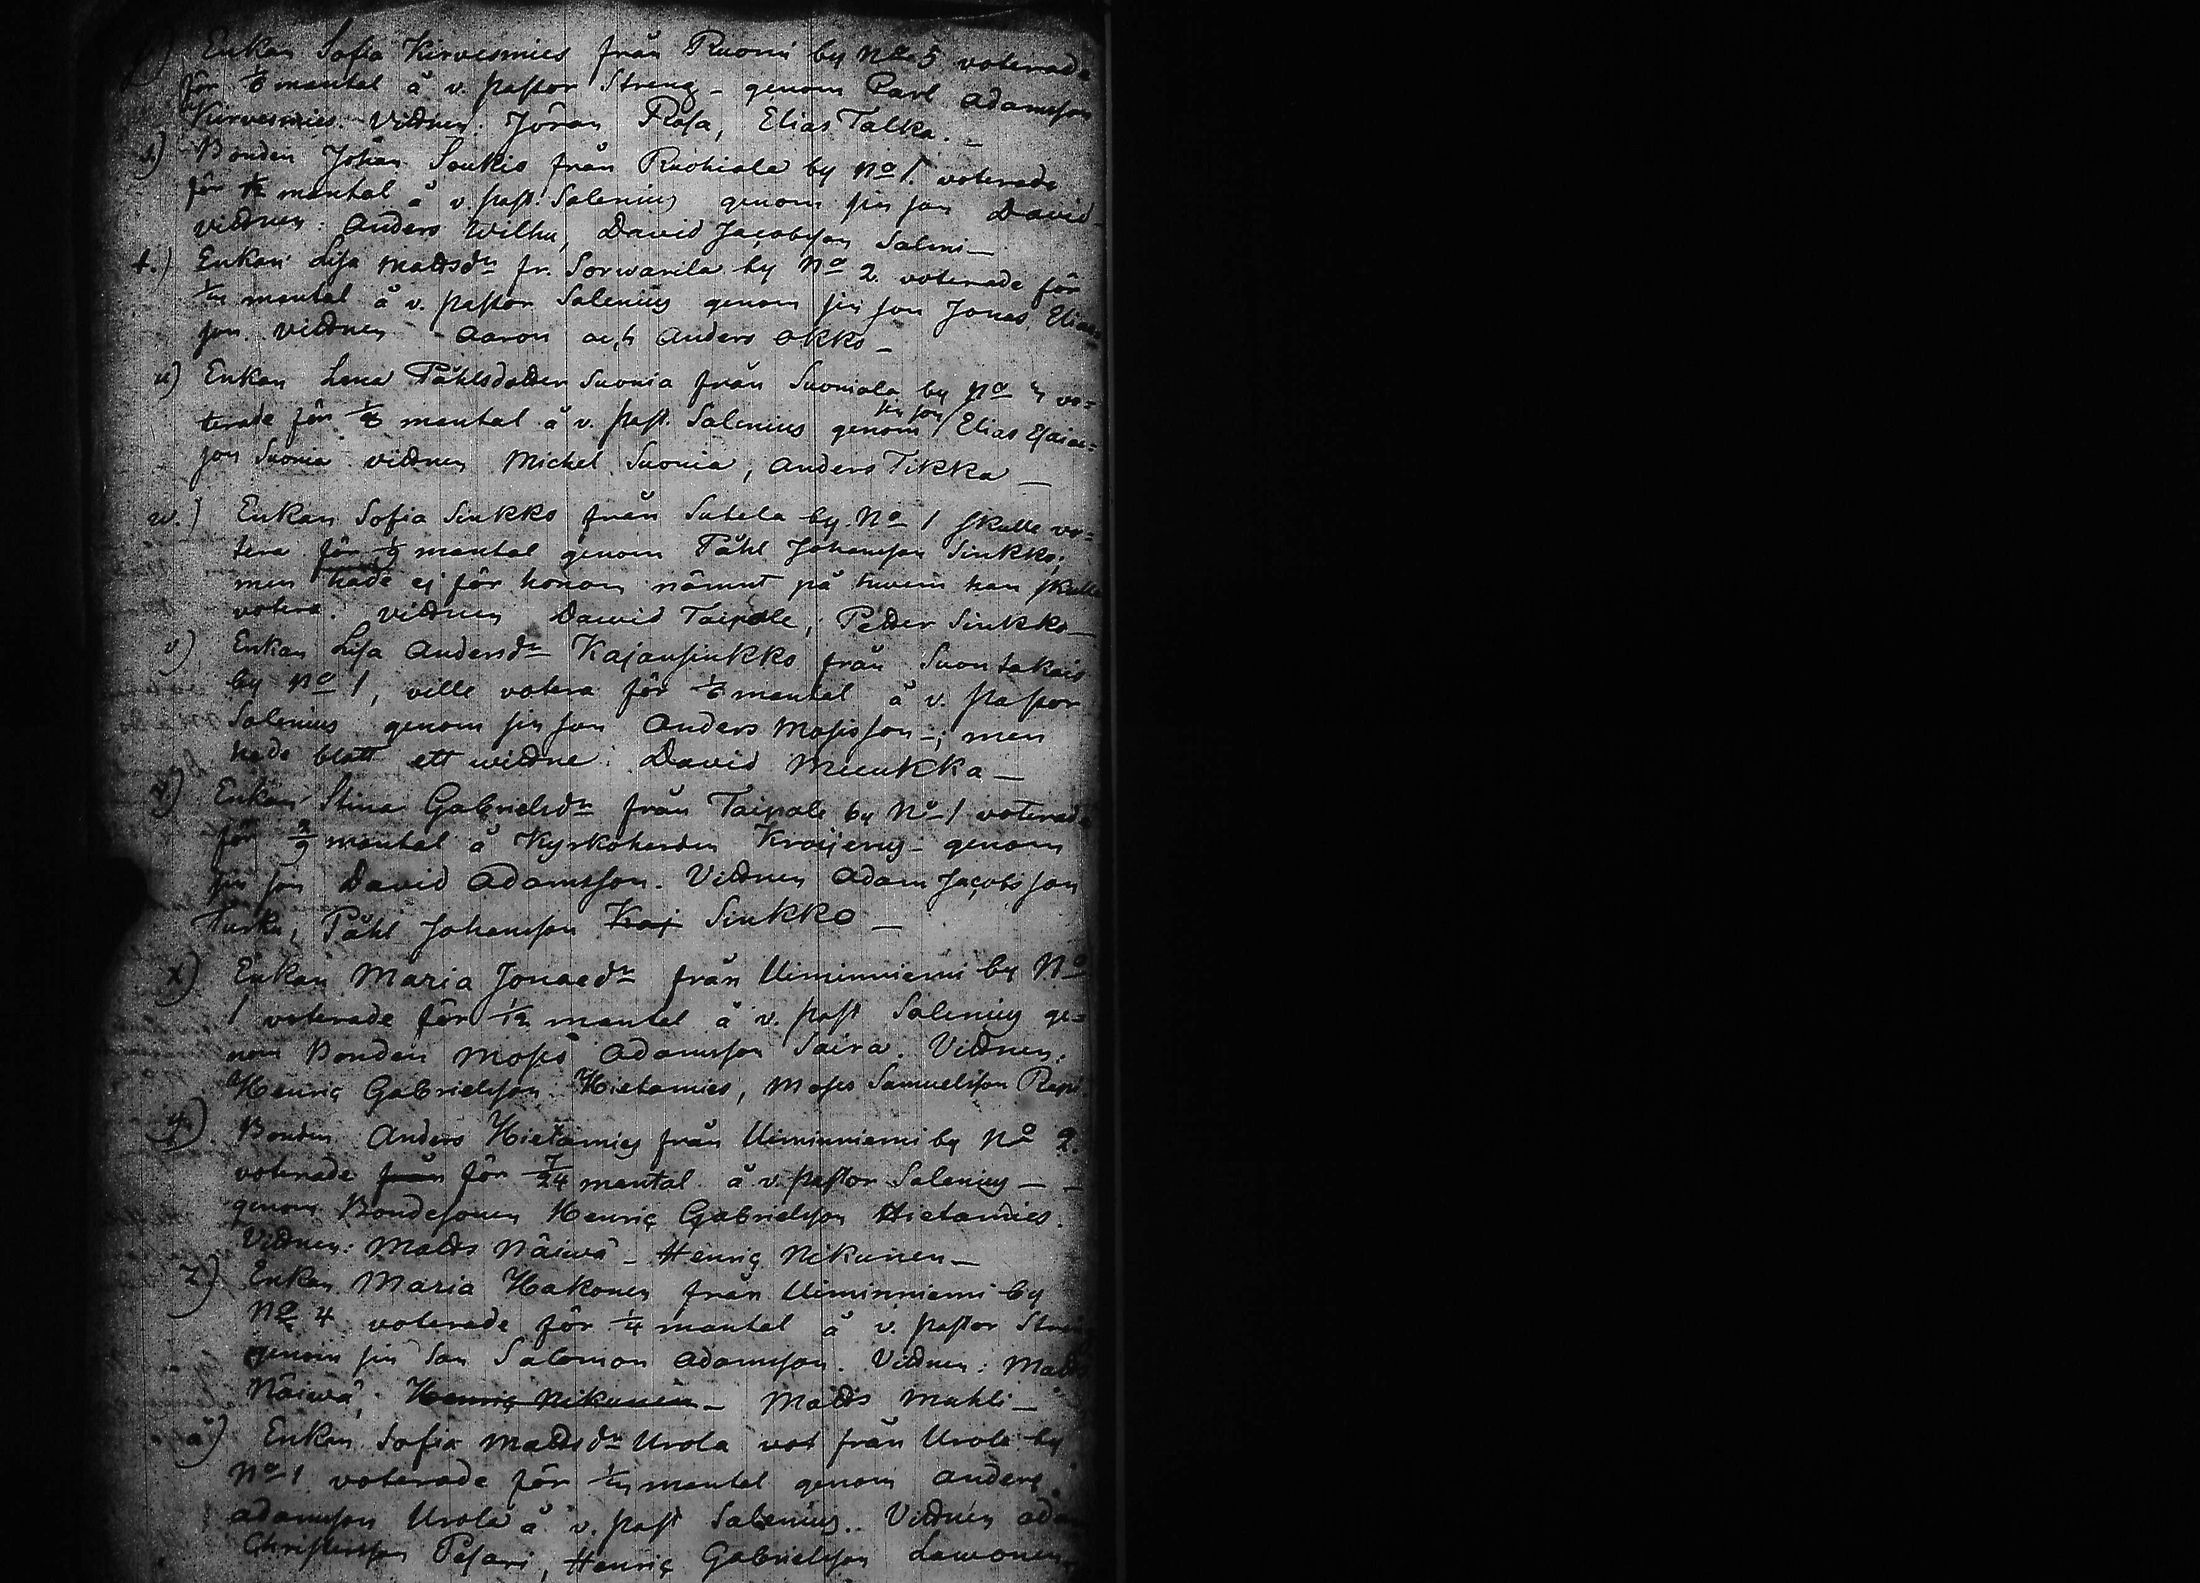 Enkan Sofia Kirvesmies från Ruomi by No 5 voterade
för 1/6 mantal å v. pastor Streng - genom Carl Adamsson
Kirvesmies. Vidnen: Jöran Rasa, Elias Talka. -
s) Bonden Johan Soukio från Ruohiala by No 1. voterade
för 1/12 mantal å v. past. Salenius genom sin son David -
vidnen: Anders Wilhu, David Jacobsson Salmi -
t.) Enkan Lisa Mattsdr fr. Sorwarila by No 2 voterade för
mantal å v. pastor Salenius genom sin son Jonas Elias
son vidnen - Aaron och Anders Okko -
u) Enkan Lena Påhlsdotter Suonia från Suoniala by No 4 vo=
terade för 1/8 mantal å v. past. Salenius genom sin son Elias Esaias=
son Suonia vidnen Michel Suonia, Anders Tikka -
w.) Enkan Sofia Sinkko från Sutela by No 1 skulle vo=
tera för 1/9 mantal genom Påhl Johansson Sinkko;
men hade ej för honom nämnt på hwem han skulle
votera. vidnen David Taipale, Petter Sinkko -
v) Enkan Lisa Andersdr Kajansinkko från Suontakais
by No 1, ville votera för 1/6 mantal å v. pastor
Salenius genom sin son Anders Mosisson -; men
hade blott ett widne: David Muukka -
Enkan Stina Gabrielsdr från Taipale by No 1 voterade
för 2/9 mantal å Kyrkoherden genom
sin son David Adamsson. Vidnen Adam Jacobsson
Turku, Påhl Johansson Kaj Sinkko -
x) Enkan Maria Jonaedr från Uiminniemi by No
1 voterade för 1/12 mantal å v. past Salenius ge=
nom Bonden Moses Adamsson Saira. Vidnen:
Henric Gabrielsson Hietamies, Moses Samuelsson
y.) Bonden Anders Hietamies från Uiminniemi by No 2.
voterade från för 7/24 mantal å v. pastor Salenius - -
genom Bondesonen Henric Gabrielsson Hietamies.
Vidnen: Matts Näiwä - Henric Nikunen -
z) Enkan Maria Hakonen från Uiminniemi by
No 4 voterade för 1/4 mantal å v. pastor Streng
genom sin Son Salomon Adamsson. Vidnen: Matts
Näiwä, Henric Nikunen - Matts Muhli -
å) Enkan Sofia Mattsdr Urola vot från Urola by
No 1 voterade för mantal genom Anders
Adamsson Urola å v. past Salenius. Vidnen Adam
Christersson Pesari, Henric Gabrielsson Lawonen